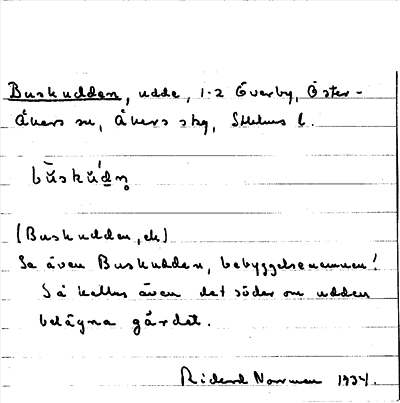 Buskudden, udde, 1-2 Överby, Öster-
Åkers sn, Åkers skg, Sthlms l.
bùskúdn̥
(Buskudden, ek)
Se även Buskudden, bebyggelsenamnen!
Så kallas även det söder om udden
belägna gärdet.
Rickard Norrman 1934.